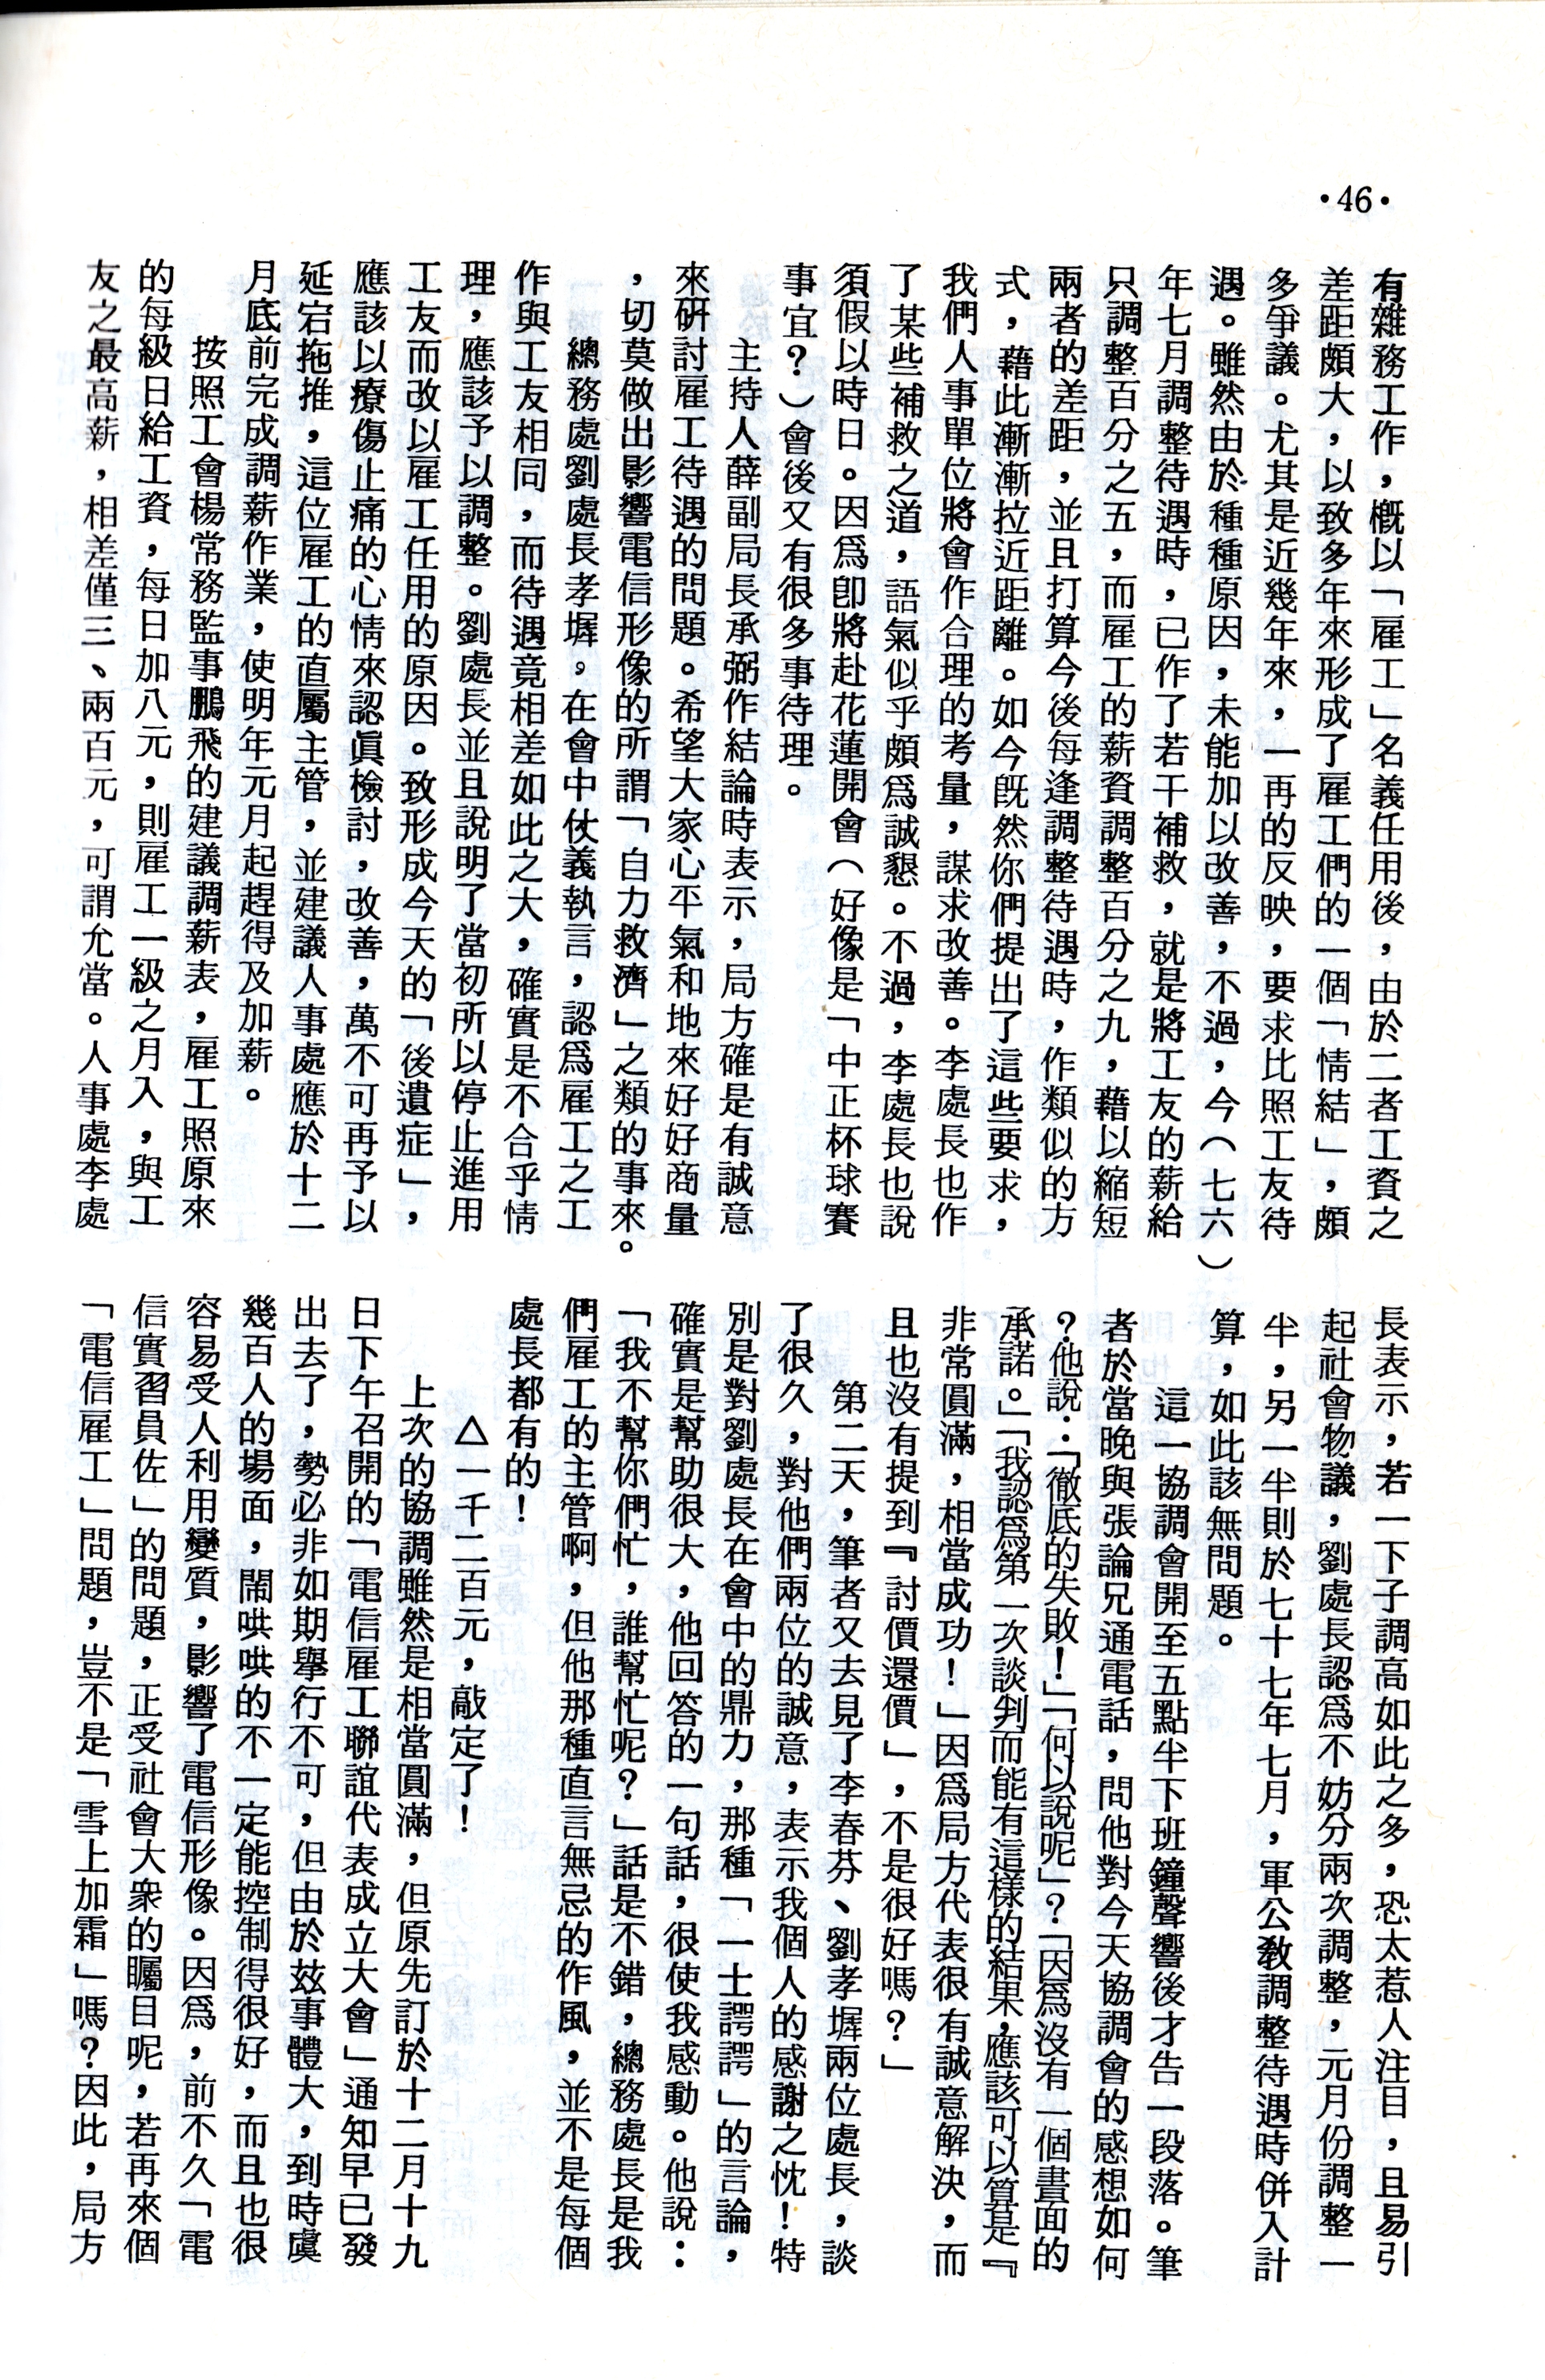 •46•
有雜務工作，概以「雇工」名義任用後，由於二者工資之
差距頗大，以致多年來形成了雇工們的一個「情結」，頗
多爭議。尤其是近幾年來，一再的反映，要求比照工友待
遇。雖然由於種種原因，未能加以改善，不過，今（七六）
年七月調整待遇時，已作了若干補救，就是將工友的薪給
只調整百分之五，而雇工的薪資調整百分之九，藉以縮短
兩者的差距，並且打算今後每逢調整待遇時，作類似的方
式，藉此漸漸拉近距離。如今既然你們提出了這些要求，
我們人事單位將會作合理的考量，謀求改善。李處長也作
了某些補救之道，語氣似乎頗爲誠懇。不過，李處長也說
須假以時日。因爲卽將赴花蓮開會（好像是「中正杯球賽
事宜？）會後又有很多事待理。
主持人薛副局長承弼作結論時表示，局方確是有誠意
來硏討雇工待遇的問題。希望大家心平氣和地來好好商量
，切莫做出影響電信形像的所謂「自力救濟」之類的事來。
總務處劉處長孝墀。在會中仗義執言，認爲雇工之工
作與工友相同，而待遇竟相差如此之大，確實是不合乎情
理，應該予以調整。劉處長並且說明了當初所以停止進用
工友而改以雇工任用的原因。致形成今天的「後遺症」，
應該以療傷止痛的心情來認眞檢討，改善，萬不可再予以
延宕拖推，這位雇工的直屬主管，並建議人事處應於十二
月底前完成調薪作業，使明年元月起趕得及加薪。
按照工會楊常務監事鵬飛的建議調薪表，雇工照原來
的每級日給工資，每日加八元，則雇工一級之月入，與工
友之最高薪，相差僅三、兩百元，可謂允當。人事處李處
長表示，若一下子調高如此之多，恐太惹人注目，且易引
起社會物議，劉處長認爲不妨分兩次調整，元月份調整一
半，另一半則於七十七年七月，軍公敎調整待遇時併入計
算，如此該無問題。
這一協調會開至五點半下班鐘聲響後才告一段落。筆
者於當晚與張論兄通電話，問他對今天協調會的感想如何
？他說：「徹底的失敗！」「何以說呢」？「因爲沒有一個書面的
承諾。」「我認爲第一次談判而能有這樣的結果，應該可以算是『
非常圓滿，相當成功！」因爲局方代表很有誠意解決，而
且也沒有提到『討價還價」，不是很好嗎？」
第二天，筆者又去見了李春芬、劉孝墀兩位處長，談
了很久，對他們兩位的誠意，表示我個人的感謝之忱！特
別是對劉處長在會中的鼎力，那種「一士諤諤」的言論，
確實是幫助很大，他回答的一句話，很使我感動。他說：
「我不幫你們忙，誰幫忙呢？」話是不錯，總務處長是我
們雇工的主管啊，但他那種直言無忌的作風，並不是每個
處長都有的！
△一千二百元，敲定了！
上次的協調雖然是相當圓滿，但原先訂於十二月十九
日下午召開的「電信雇工聯誼代表成立大會」通知早已發
出去了，勢必非如期舉行不可，但由於玆事體大，到時虞
幾百人的場面，鬧哄哄的不一定能控制得很好，而且也很
容易受人利用變質，影響了電信形像。因爲，前不久「電
信實習員佐」的問題，正受社會大衆的矚目呢，若再來個
「電信雇工」問題，豈不是「雪上加霜」嗎？因此，局方